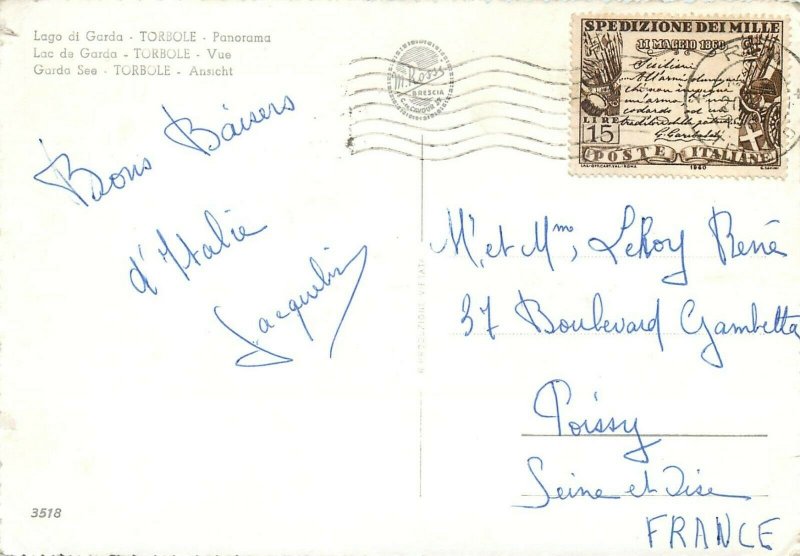 Lago di Garda - TORBOLE - Panorama
Lac de Garda - TORBOLE - Vue
Garda See - TORBOLE - Ansicht
M. Rossi
BRESCIA
SPEDIZIONE DEI MILLE
11 MAGGIO 1860
Siciliani
G. Garibaldi
LIRE
15
POSTE ITALIANE
1960
Bons Baisers
d'Italie
Jacqueline
Mr. et Mme, LeRoy René
37 Boulevard Gambetta
Poissy
Seine et Oise
FRANCE
RIPRODUZIONE VIETATA
3518